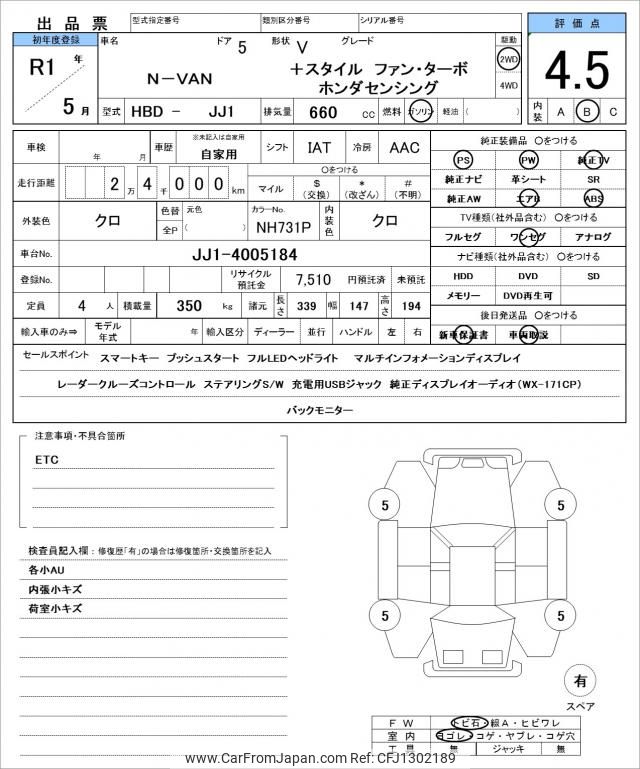 出品票 型式指定番号 類別区分番号 シリアル番号 評価点
初年度登録 車名 ドア 5 形状 V グレード 駆動
R1 年 5 月
N-VAN +スタイル ファン・ターボ
ホンダセンシング
2WD
4WD
4.5
型式 HBD - JJ1 排気量 660 cc 燃料 ガソリン 軽油 ( ) 内装 A B C
車検 年 月 車歴 ※未記入は自家用 自家用 シフト IAT 冷房 AAC
走行距離 2 万 4 千 0 0 0 km ○をつける
マイル $ (交換) * (改ざん) # (不明)
外装色 クロ 色替 元色 全P ( ) カラーNo. NH731P 内装色 クロ
車台No. JJ1-4005184
登録No. リサイクル預託金 7,510 円預託済 未預託
定員 4 人 積載量 350 kg 諸元 長さ 339 幅 147 高さ 194
輸入車のみ⇒ モデル年式 年 輸入区分 ディーラー 並行 ハンドル 左 右
純正装備品 ○をつける
PS PW 純正TV
純正ナビ 革シート SR
純正AW エアB ABS
TV種類(社外品含む) ○をつける
フルセグ ワンセグ アナログ
ナビ種類(社外品含む) ○をつける
HDD DVD SD
メモリー DVD再生可
後日発送品 ○をつける
新車保証書 車両取説
セールスポイント スマートキー プッシュスタート フルLEDヘッドライト マルチインフォメーションディスプレイ
レーダークルーズコントロール ステアリングS/W 充電用USBジャック 純正ディスプレイオーディオ(WX-171CP)
バックモニター
注意事項・不具合箇所
ETC
検査員記入欄:修復歴「有」の場合は修復箇所・交換箇所を記入
各小AU
内張小キズ
荷室小キズ
5 5
5 5
有
スペア
FW トビ石・線A・ヒビワレ
室内 ヨゴレ・コゲ・ヤブレ・コゲ穴
工具 無 ジャッキ 無
www.CarFromJapan.com Ref: CFJ1302189